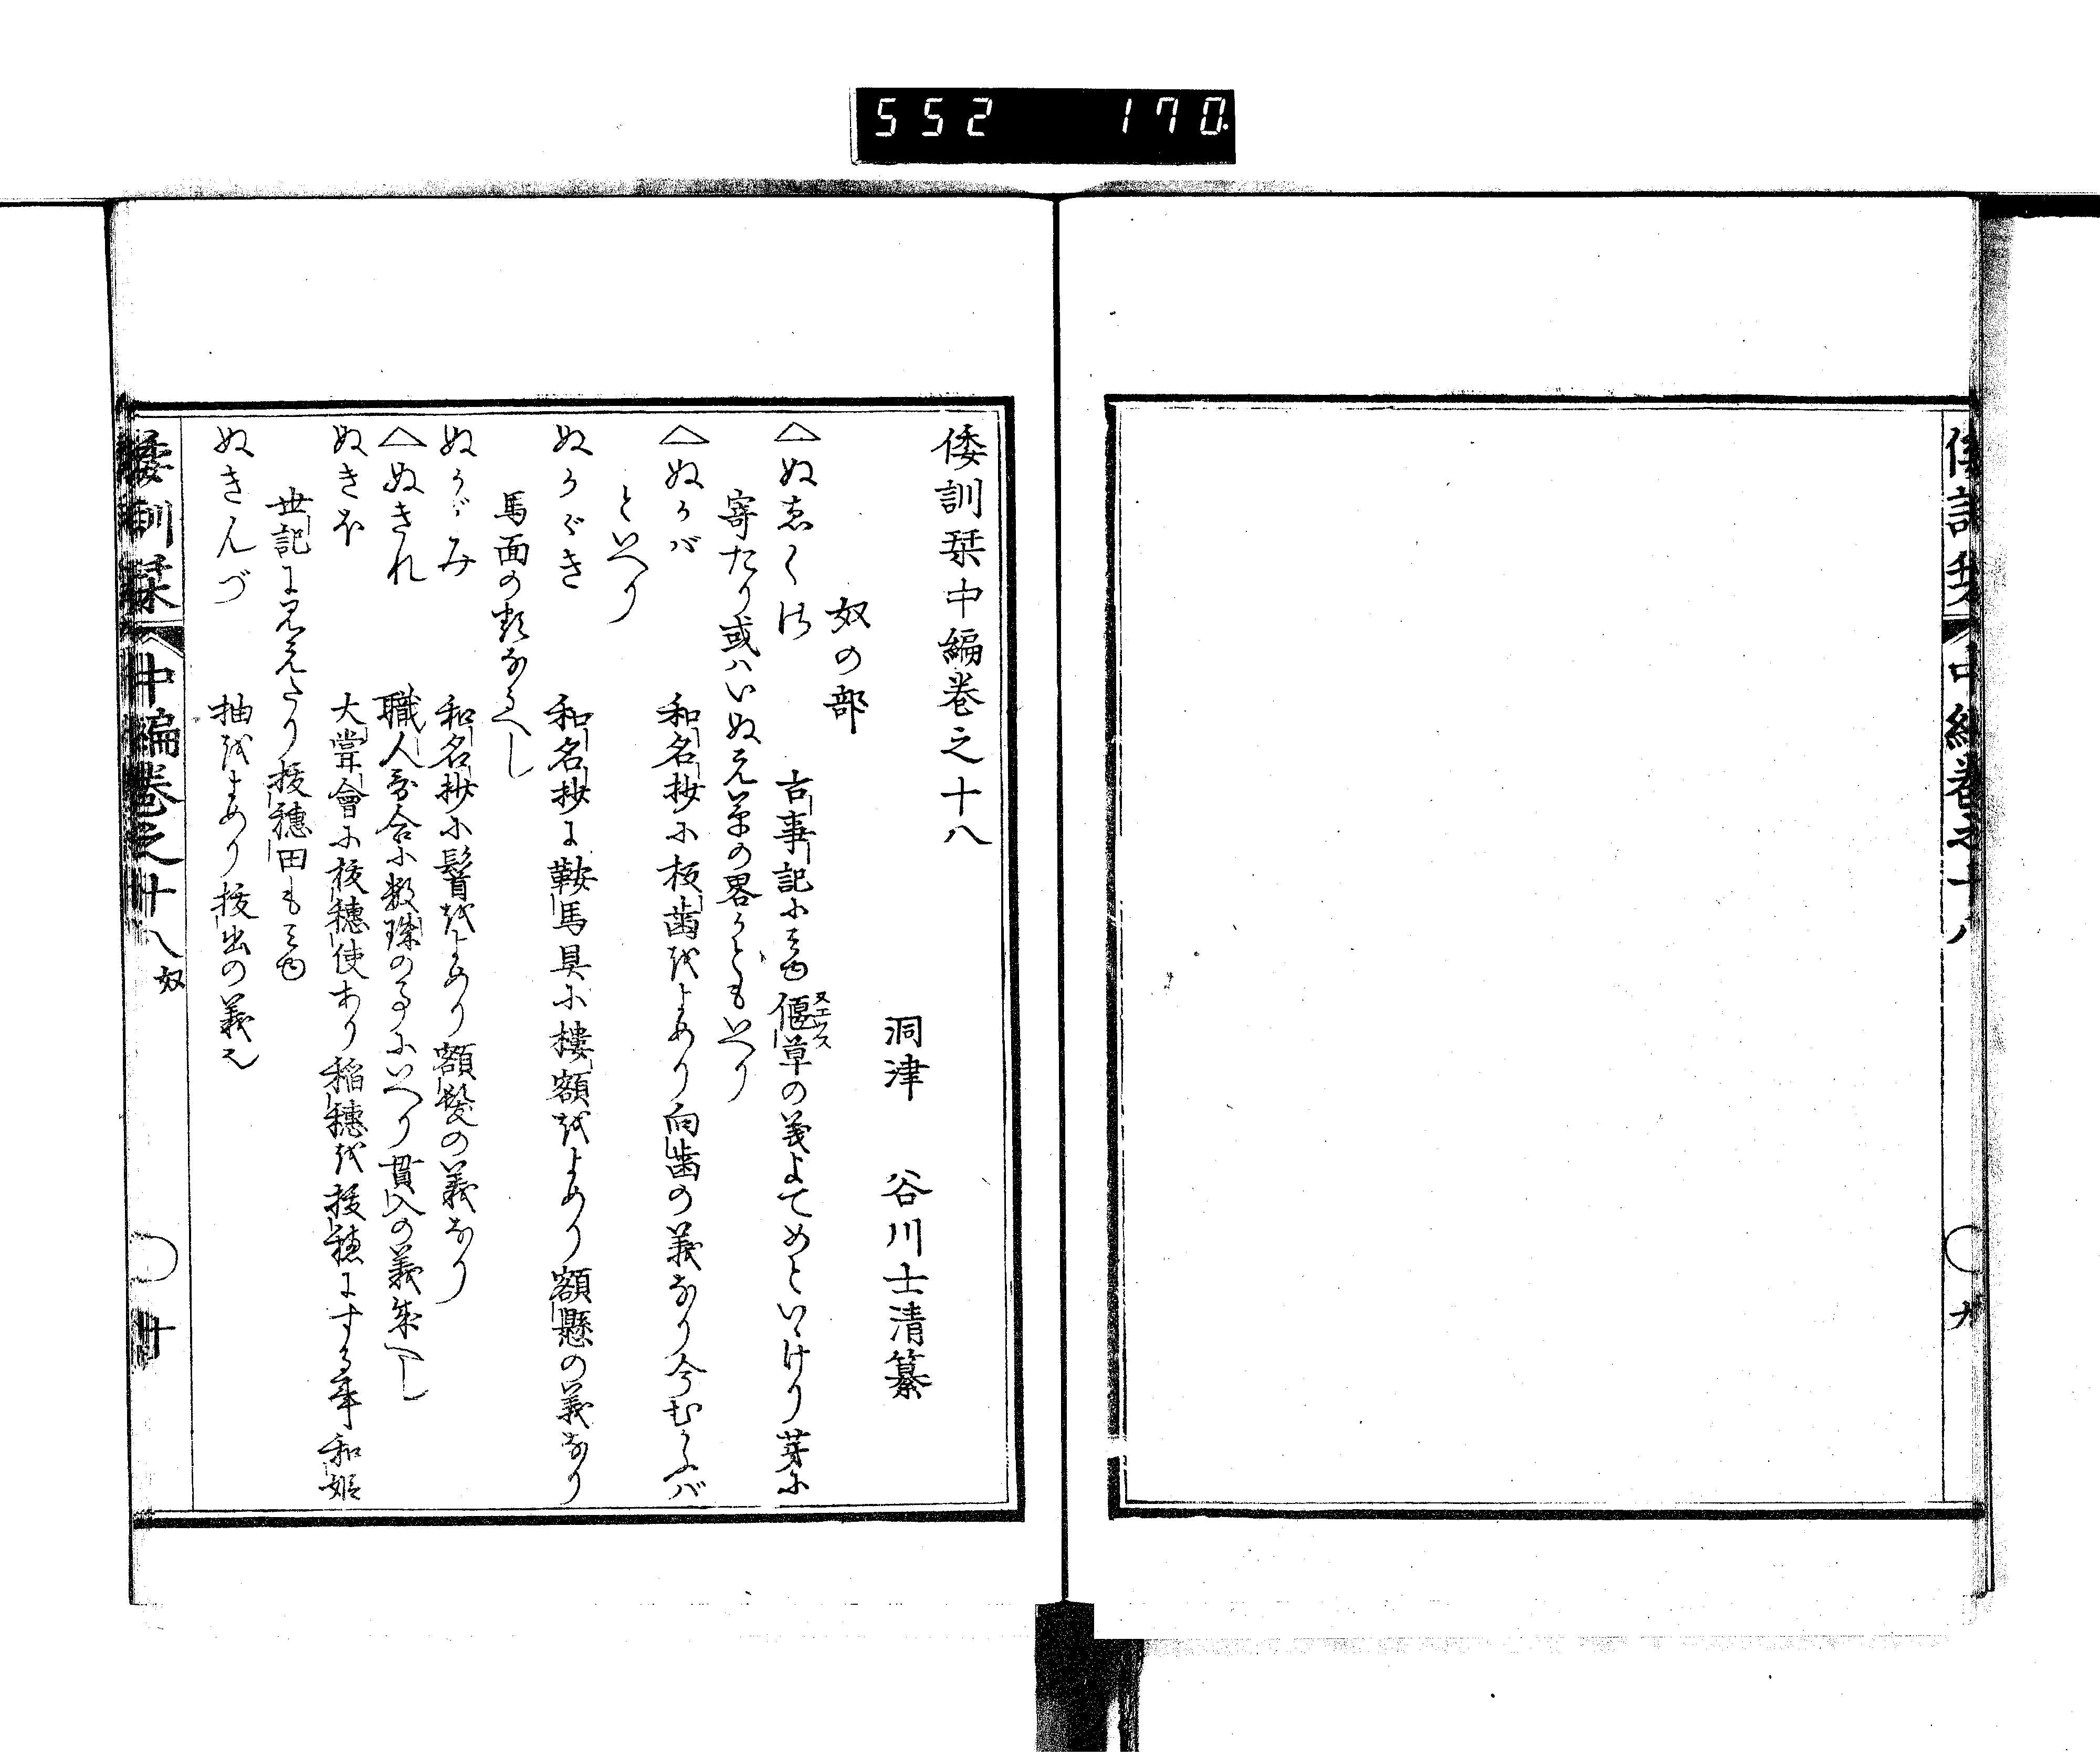 552 170
倭訓栞 中編巻之十八 九
倭訓栞中編巻之十八
洞津 谷川士清纂
奴の部
△ぬゑくさ 古事記にみゆ偃草の義よてめといへり芽に
ヌエクス
寄たり或ハいぬえ草の畧かともいへり
△ぬかば 和名抄に板歯をよめり向歯の義なり今むかふバ
といへり
ぬかがき 和名抄に鞍馬具に樓額をよめり額懸の義なり
馬面の類なるへし
ぬかがみ 和名抄に鬘をよめり額髪の義なり
△ぬきれ 職人哥合に数珠の事にいへり貫入の義成へし
ぬきほ 大嘗會に抜穂使あり稲穂を抜穂にする事和姫
世記に見えたり抜穂田もみゆ
ぬきんづ 抽をよめり抜出の義也
倭訓栞 中編巻之十八 奴 十